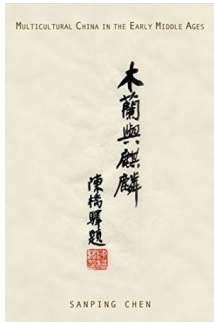 MULTICULTURAL CHINA IN THE EARLY MIDDLE AGES
木蘭與麒麟
陳橋驛題
SANPING CHEN